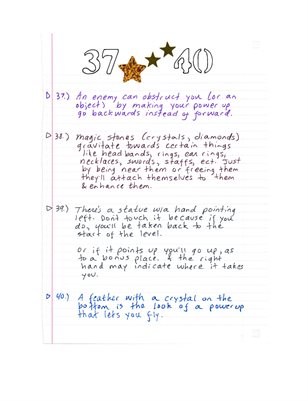 37 40
37.) An enemy can obstruct you (or an
object) by making your power up
go backwards instead of forward.
38.) Magic stones (crystals, diamonds)
gravitate towards certain things
like headbands, rings, ear rings,
necklaces, swords, staffs, ect. Just
by being near them or freeing them
they'll attach themselves to them
& enhance them.
39.) There's a statue w/a hand pointing
left. Don't touch it because if you
do, you'll be taken back to the
start of the level.
Or if it points up you'll go up, as
to a bonus place. & the right
hand may indicate where it takes
you.
40.) A feather with a crystal on the
bottom is the look of a powerup
that lets you fly.